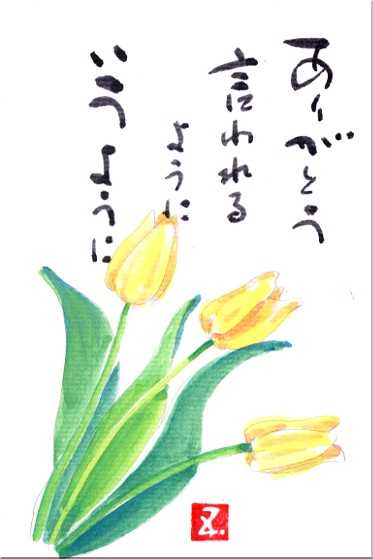 ありがとう
言われる
ように
いうように